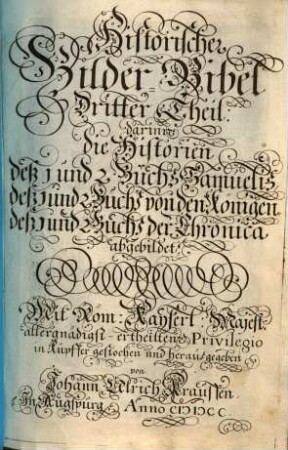 Historischer
Bilder Bibel
Dritter Theil.
darinn
die Historien
deß 1 und 2 Buchs Samuelis
deß 1 und 2 Buchs von den Königen
deß 1 und 2 Buchs der Chronica
abgebildet.
Mit Röm: Kayserl: Majest.
allergnädigst-ertheilten Privilegio
in Kupffer gestochen und heraus gegeben
von
Johann Ulrich Kraussen
in Augspurg. Anno CIƆIƆCC.